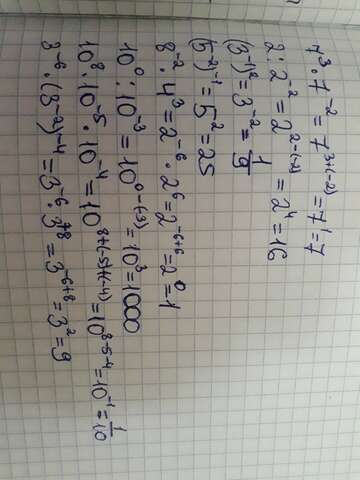 7³ · 7⁻² = 7³⁺⁽⁻²⁾ = 7¹ = 7
2 : 2⁻² = 2²⁻⁽⁻²⁾ = 2⁴ = 16
(3⁻¹)² = 3⁻² = 1/9
(5⁻²)⁻¹ = 5² = 25
8⁻² · 4³ = 2⁻⁶ · 2⁶ = 2⁻⁶⁺⁶ = 2⁰ = 1
10⁰ : 10⁻³ = 10⁰⁻⁽⁻³⁾ = 10³ = 1000
10⁸ · 10⁻⁵ · 10⁻⁴ = 10⁸⁺⁽⁻⁵⁾⁺⁽⁻⁴⁾ = 10⁸⁻⁵⁻⁴ = 10⁻¹ = 1/10
3⁻⁶ · (3⁻²)⁻⁴ = 3⁻⁶ · 3⁺⁸ = 3⁻⁶⁺⁸ = 3² = 9